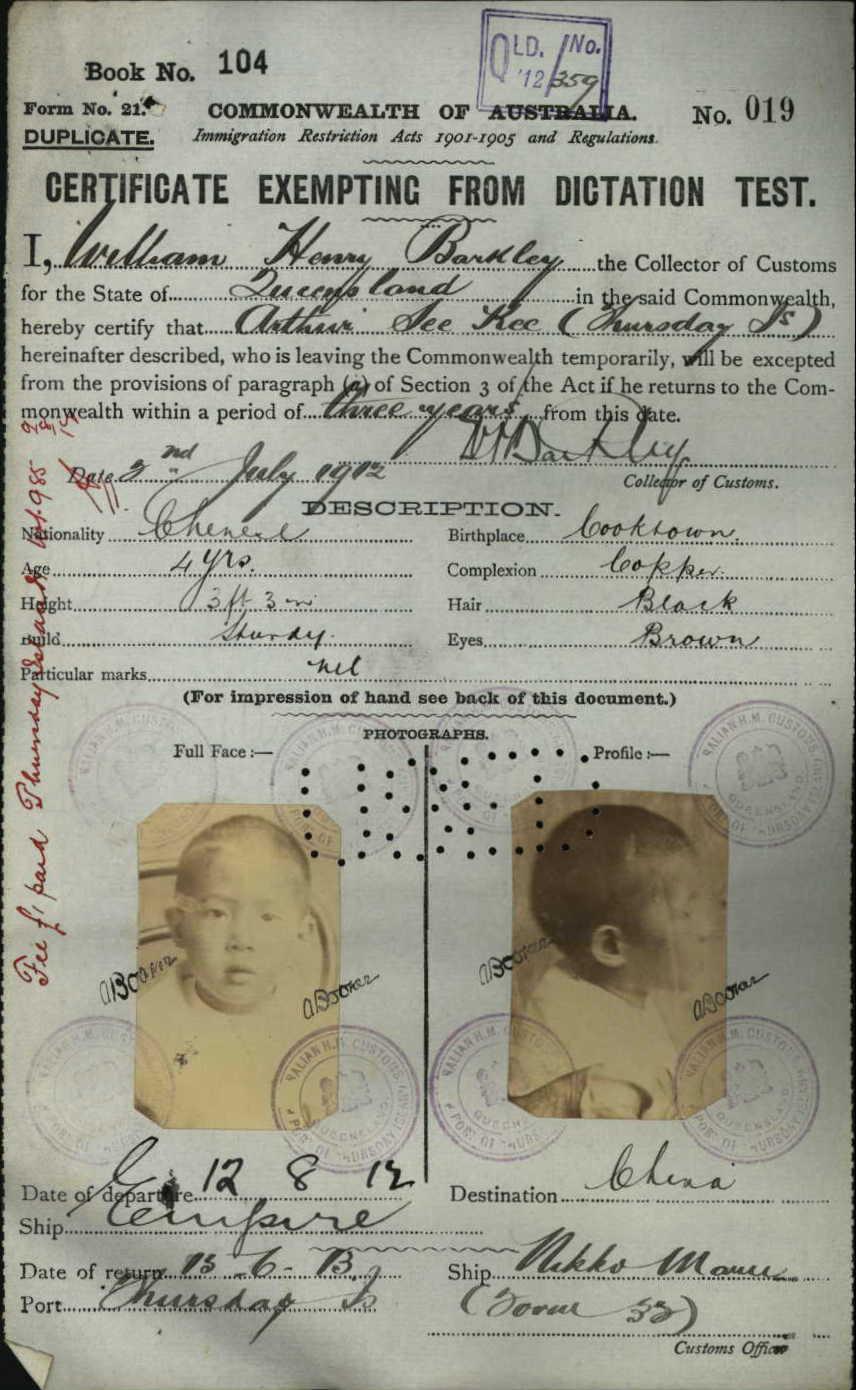 Book No. 104
QLD. No.
'12/359
Form No. 21.
COMMONWEALTH OF AUSTRALIA.
No. 019
DUPLICATE.
Immigration Restriction Acts 1901-1905 and Regulations.
CERTIFICATE EXEMPTING FROM DICTATION TEST.
I, William Henry Barkley the Collector of Customs
for the State of Queensland in the said Commonwealth,
hereby certify that Arthur See Kee (Thursday Is)
hereinafter described, who is leaving the Commonwealth temporarily, will be excepted
from the provisions of paragraph (a) of Section 3 of the Act if he returns to the Com-
monwealth within a period of three years from this date.
Date 2nd July 1912
WHBarkley
Collector of Customs.
DESCRIPTION.
Nationality Chinese
Birthplace Cooktown.
Age 4 yrs.
Complexion Copper
Height 3 ft 3 in
Hair Black
Build Sturdy.
Eyes Brown
Particular marks nil
(For impression of hand see back of this document.)
PHOTOGRAPHS.
Full Face :—
Profile :—
Fee £1 paid Thursday Island
ABooker
ABooker
ABooker
ABooker
RALIAN H.M. CUSTOMS
QUEENSLAND
PORT OF THURSDAY
Date of departure 12 8 12
Destination China
Ship Empire
Date of return 13-6-13
Ship Nikko Maru
Port Thursday Is
Customs Officer